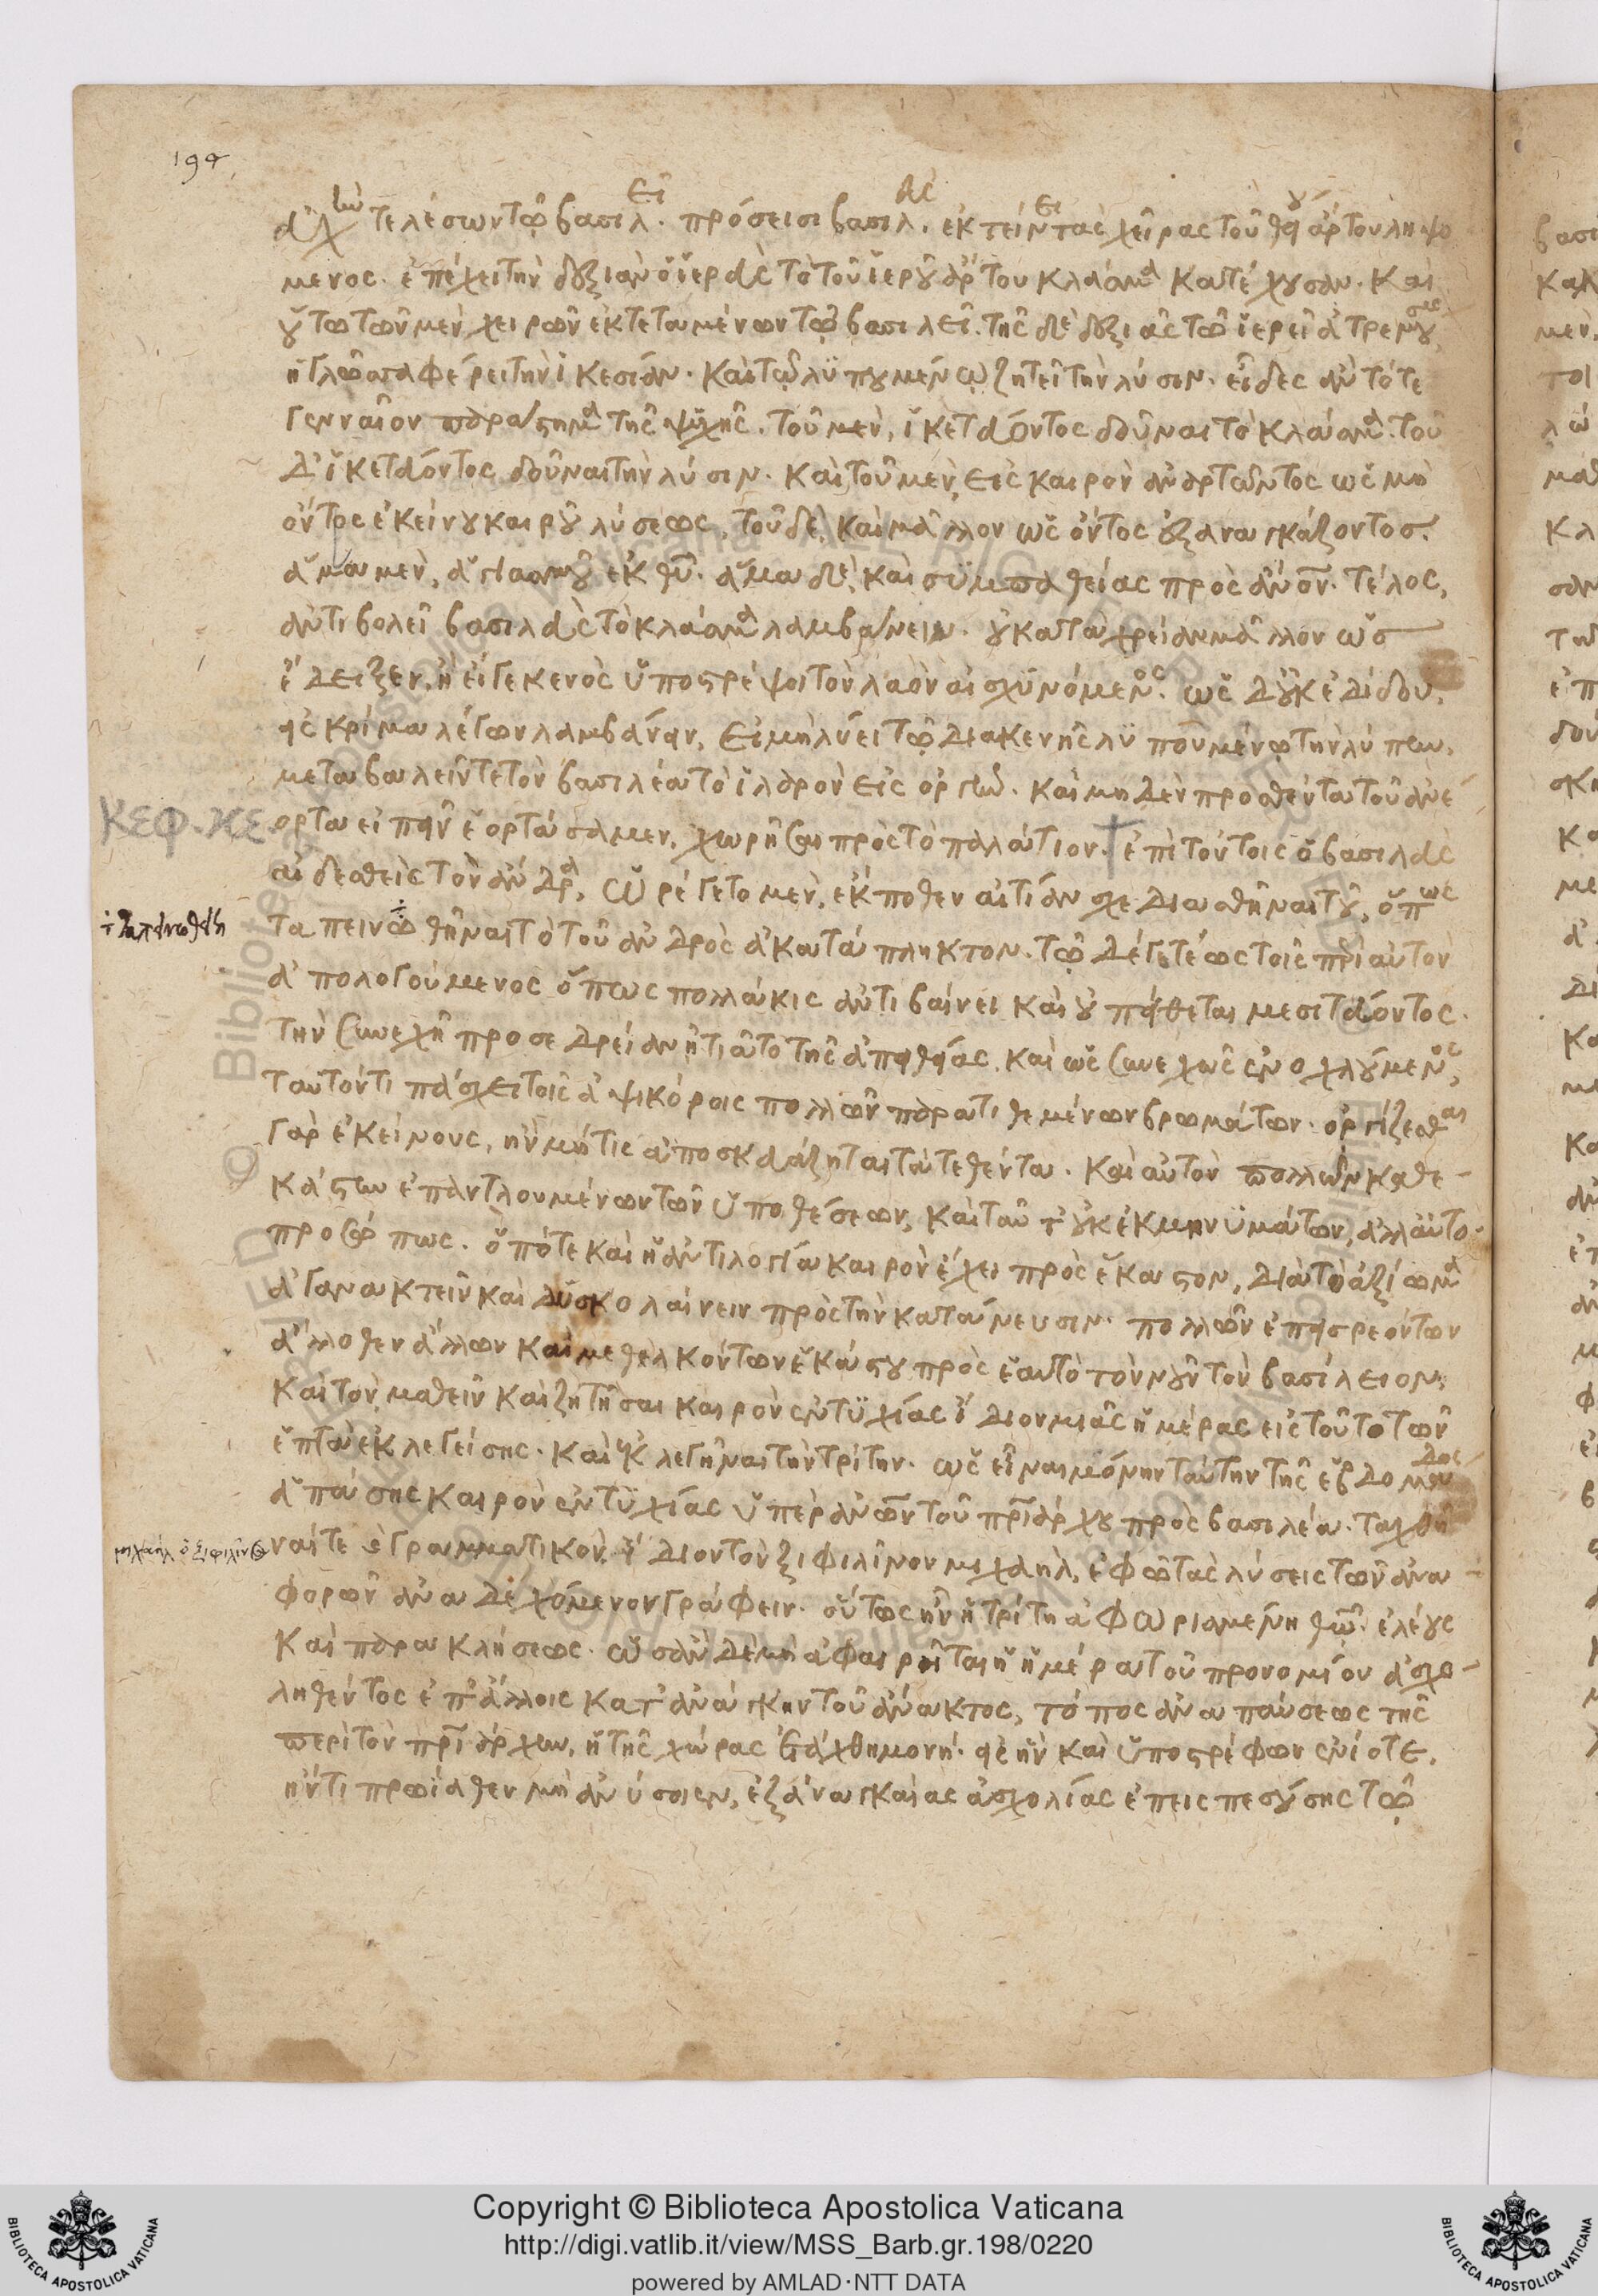 194
εὐχὴν τελέσων τῷ βασιλεῖ. πρόσεισι βασιλεὺς. ἐκτείνει τὰς χεῖρας τοῦ θείου ἄρτου ληψό
μενος. ἐπέχει τὴν δεξιὰν ὁ ἱερεὺς τὸ τοῦ ἱεροῦ ἄρτου κλάσμα κατέχουσαν. καὶ
οὕτω τῶν μὲν χειρῶν ἐκτεταμένων τῷ βασιλεῖ. τῆς δὲ δεξιᾶς τῷ ἱερεῖ ἀτρεμούσης
ἡ γλῶσσα φέρει τὴν ἱκεσίαν. καὶ τῷ λυπουμένῳ ζητεῖ τὴν λύσιν. εἶδες ἂν τότε
γενναῖον παράστημα τῆς ψυχῆς. τοῦ μὲν, ἱκετεύοντος δοῦναι τὸ κλάσμα. τοῦ
δ' ἱκετεύοντος δοῦναι τὴν λύσιν. καὶ τοῦ μὲν, εἰς καιρὸν ἀναρτῶντος ὡς μὴ
ὄντος ἐκείνου καιροῦ λύσεως, τοῦ δὲ, καὶ μᾶλλον ὡς ὄντος ἐξαναγκάζοντος.
ἅμα μὲν, ἁγιασμοῦ ἐκ θεοῦ. ἅμα δὲ, καὶ συμπαθείας πρὸς ἄνον. τέλος,
ἀντιβολεῖ βασιλεὺς τὸ κλάσμα λαμβάνειν. οὐ κατὰ χρείαν μᾶλλον ὡς
ἔδειξεν, ἢ εἴγε κενὸς ὑποστρέψοι τὸν λαὸν αἰσχυνόμενος. ὡς δ' οὐκ ἐδίδου,
εἰς κρίμα λέγων λαμβάνειν, εἰ μὴ λύει τῷ διακενῆς λυπουμένῳ τὴν λύπην.
μεταβαλεῖν τε τὸν βασιλέα τὸ ἱλαρὸν εἰς ὀργήν. καὶ μηδὲν προσθέντα τοῦ ἀνέ
ΚΕΦ. ΚΕ. ορτα εἰπεῖν ἑορτάσαμεν, χωρῆσαι πρὸς τὸ παλάτιον. ἐπὶ τούτοις ὁ βασιλεὺς
αἰδεσθεὶς τὸν ἄνδρα, ὠρέγετο μὲν, ἔκποθεν αἰτίαν σχεδιασθῆναι τοῦ, ὅπως
ταπεινωθῆναι τὸ τοῦ ἀνδρὸς ἀκατάπληκτον. τῷ δέ γε τέως τοῖς περὶ αὐτὸν
ἀπολογούμενος ὅπως πολλάκις ἀντιβαίνει καὶ οὐ πείθεται μεσιτεύοντος.
τὴν συνεχῆ προσεδρείαν ᾐτιᾶτο τῆς ἀπειθείας. καὶ ὡς συνεχῶς ἐνοχλούμενος,
ταὐτόν τι πάσχει τοῖς ἀψικόροις πολλῶν παρατιθεμένων βρωμάτων. ὀργίζεσθαι
γὰρ ἐκείνους, ἢν μή τις ἀποσκευάζηται τὰ τεθέντα. καὶ αὐτὸν πολλῶν καθε
κάστην ἐπαντλουμένων τῶν ὑποθέσεων, καὶ ταῦτ' οὐκ ἐκ μηνυμάτων, ἀλλ' αὐτο
προσώπως. ὁπότε καὶ ἡ ἀντιλογία καιρὸν ἔχει πρὸς ἕκαστον, διὰ τὸ ἀξίωμα
ἀγανακτεῖν καὶ δυσκολαίνειν πρὸς τὴν κατάνευσιν. πολλῶν ἐπεισρεόντων
ἄλλοθεν ἄλλων καὶ μεθελκόντων ἑκάστου πρὸς ἑαυτὸ τὸν νοῦν τὸν βασίλειον.
καὶ τὸν μαθεῖν καὶ ζητῆσαι καιρὸν ἐντυχίας ἴδιον μιᾶς ἡμέρας εἰς τοῦτο τῶν
ἑπτὰ ἐκλεγείσης. καὶ ἐκλεγῆναι τὴν τρίτην. ὡς εἶναι μόνην ταύτην τῆς ἑβδομάδος
ἁπάσης καιρὸν ἐντυχίας ὑπὲρ ἀνων τοῦ πριάρχου πρὸς βασιλέα. ταχθῆ
μιχαὴλ ὁ ξιφιλῖνος ναί τε καὶ γραμματικὸν, ἴδιον τὸν ξιφιλῖνον μιχαὴλ, ἐφ' ᾧ τὰς λύσεις τῶν ἀνα
φορῶν ἀναδεχόμενον γράφειν. οὕτως ἦν ἡ τρίτη ἀφωρισμένη θεῶ. ἐλέους
καὶ παρακλήσεως. ὡσὰν δὲ μὴ ἀφαιρῆται ἡ ἡμέρα τοῦ προνομίου ἀσχο
ληθέντος ἐπ' ἄλλοις κατ' ἀνάγκην τοῦ ἄνακτος, τόπος ἀναπαύσεως τῆς
περὶ τὸν πριάρχην, ἡ τῆς χώρας ἐτάχθη μονή. εἰς ἣν καὶ ὑποστρέφων ἐνίοτε,
ἤν τι πρωίαθεν μὴ ἀνύσοιεν, ἐξ ἀναγκαίας ἀσχολίας ἐπεισπεσούσης τῷ
Copyright © Biblioteca Apostolica Vaticana
http://digi.vatlib.it/view/MSS_Barb.gr.198/0220
powered by AMLAD·NTT DATA
BIBLIOTECA APOSTOLICA VATICANA
BIBLIOTECA APOSTOLICA VATICANA